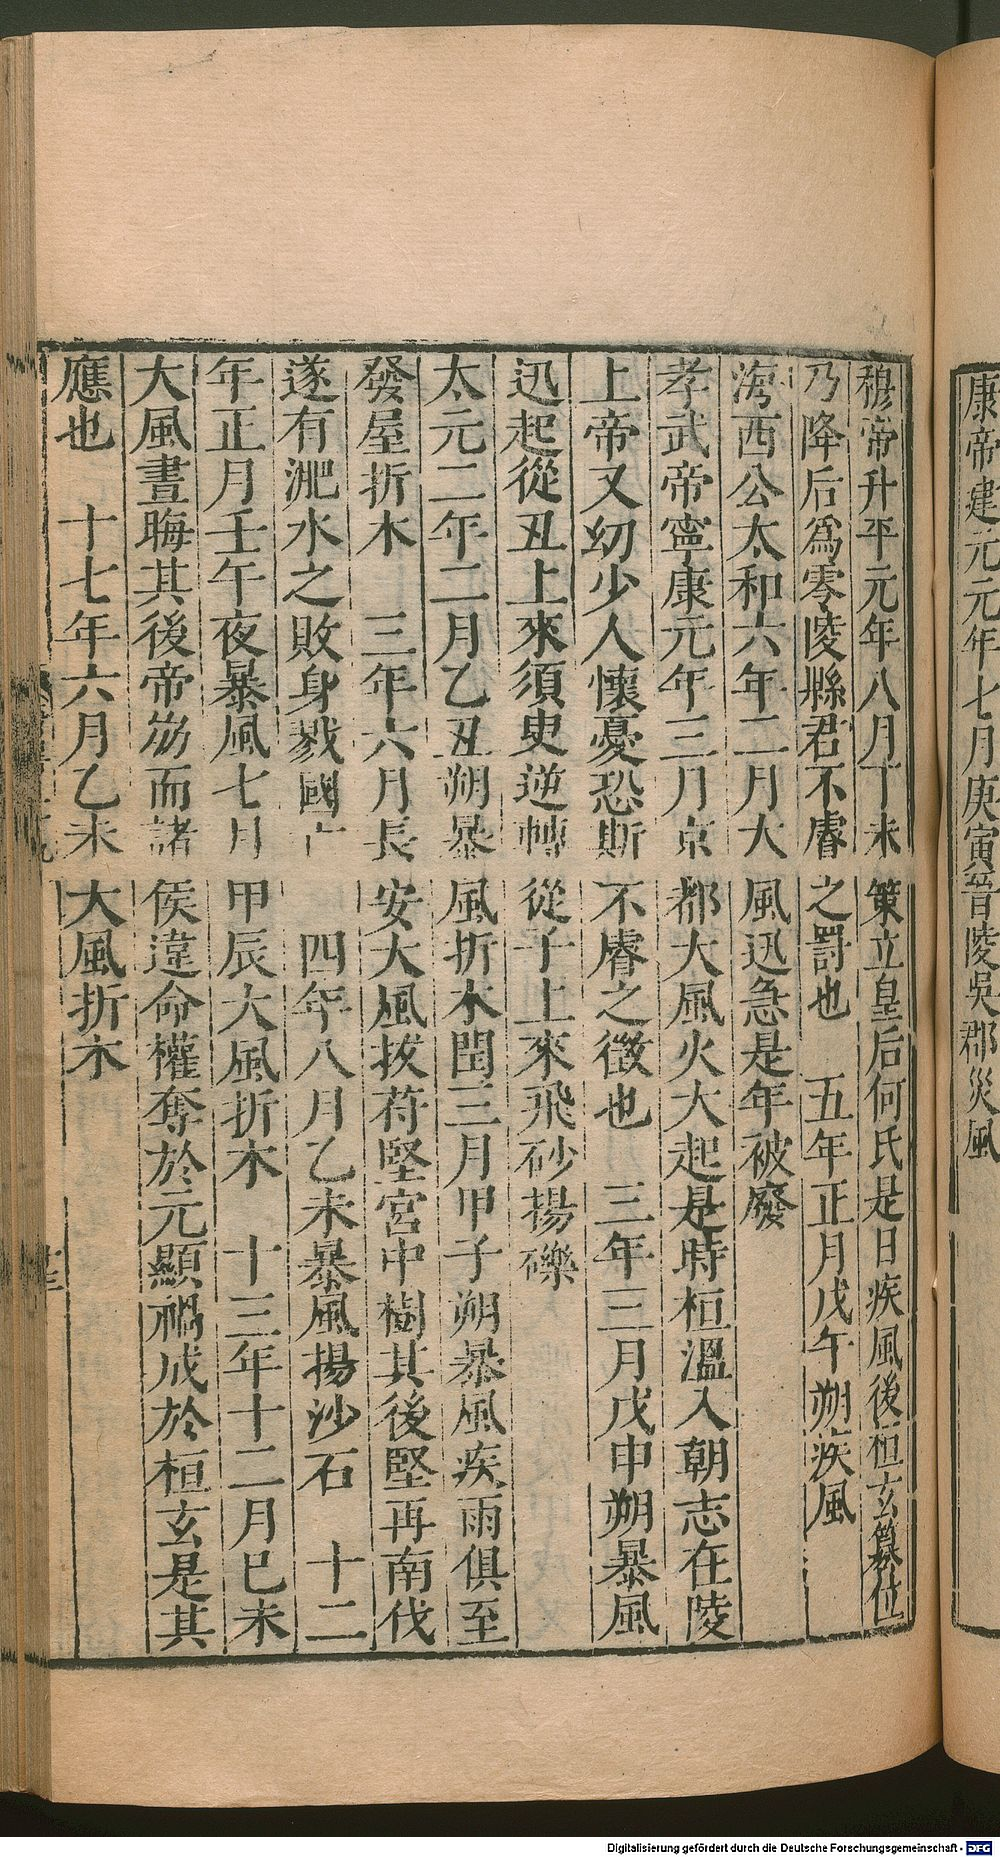 康帝建元元年七月庚寅晉陵吳郡災風
穆帝升平元年八月丁未策立皇后何氏是日疾風後桓玄篡位
乃降后爲零陵縣君不睿之罰也　五年正月戊午朔疾風
海西公太和六年二月大風迅急是年被廢
孝武帝寧康元年三月京都大風火大起是時桓溫入朝志在陵
上帝又幼少人懷憂恐斯不睿之徵也　三年三月戊申朔暴風
迅起從丑上來須臾逆轉從子上來飛砂揚礫
太元二年二月乙丑朔暴風折木閏三月甲子朔暴風疾雨俱至
發屋折木　三年六月長安大風拔苻堅宮中樹其後堅再南伐
遂有淝水之敗身戮國亡　四年八月乙未暴風揚沙石　十二
年正月壬午夜暴風七月甲辰大風折木　十三年十二月巳未
大風晝晦其後帝崩而諸侯違命權奪於元顯禍成於桓玄是其
應也　十七年六月乙未大風折木
Digitalisierung gefördert durch die Deutsche Forschungsgemeinschaft - DFG